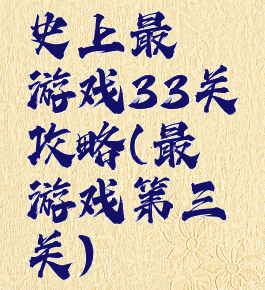 史上最
游戏33关
攻略(最
游戏第三
关)